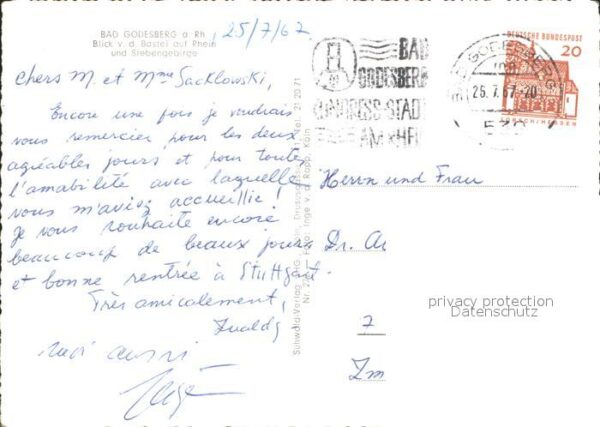 BAD GODESBERG a. Rh.
Blick v. d. Bastei auf Rhein
und Siebengebirge
25/7/67
Chers M. et Mme Sacklowski,
Encore une fois je voudrais
vous remercier pour les deux
agréables jours et pour toute
l'amabilité avec laquelle
vous m'aviez accueillie!
Je vous souhaite encore
beaucoup de beaux jours
et bonne rentrée à Stuttgart.
Très amicalement,
moi aussi
Foto: Inge v. d. Ropp, Köln
BAD
GODESBERG
KONGRESS-STADT
AM RHEIN
BAD GODESBERG
26.7.67-20
DEUTSCHE BUNDESPOST
20
Herrn und Frau
Dr. Ar
7
Zm
privacy protection
Datenschutz